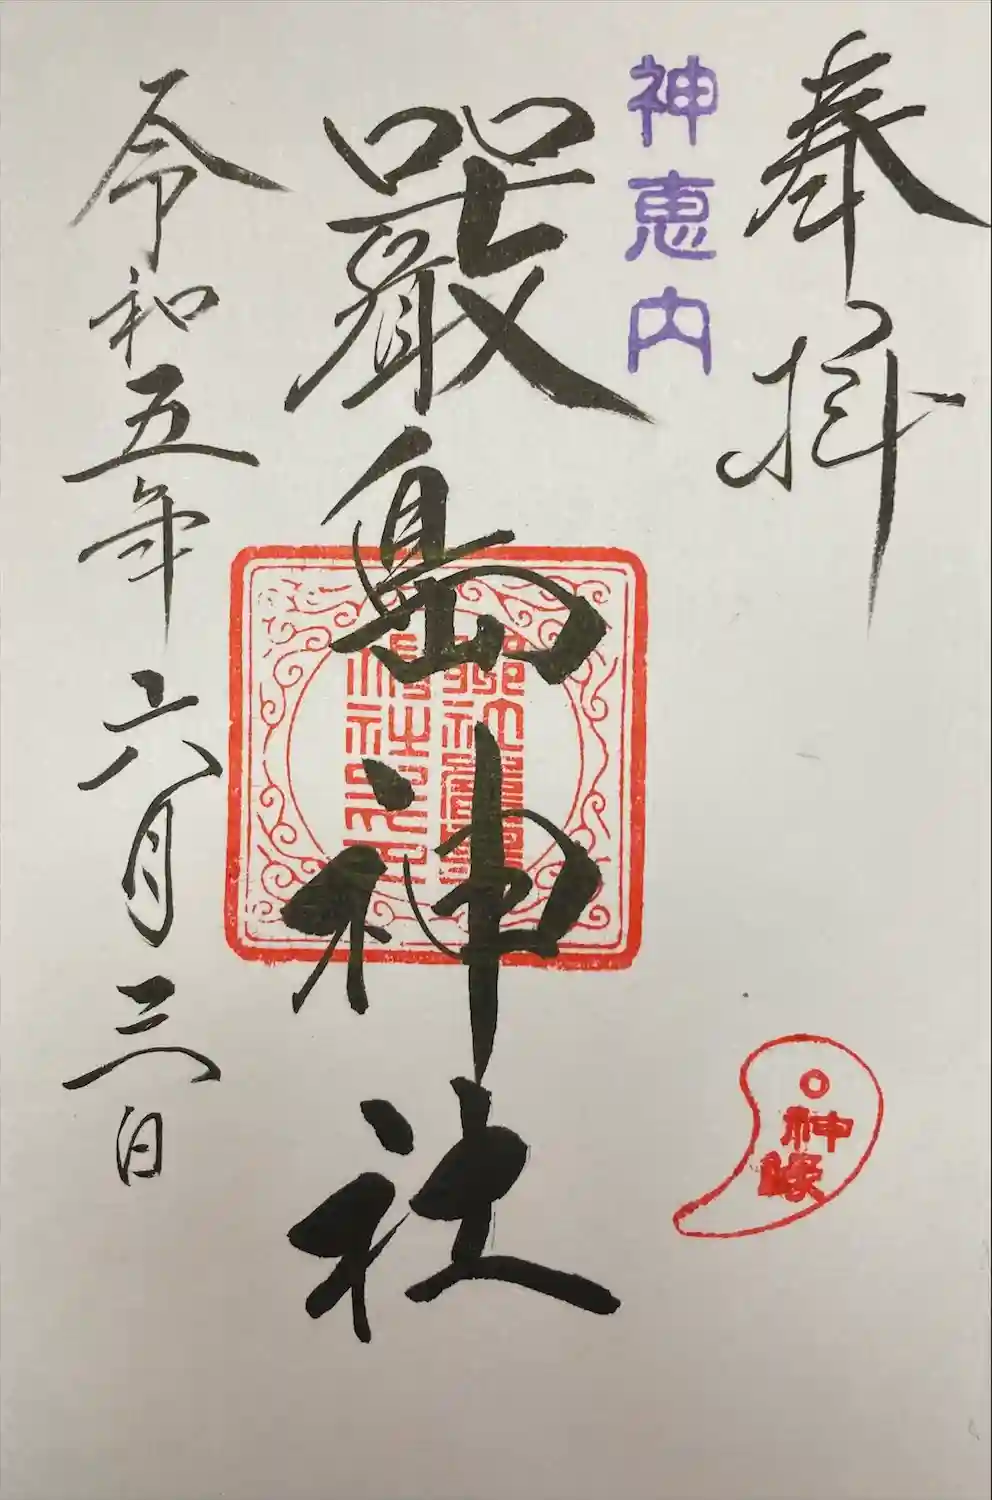 奉拝
神恵内
嚴島神社
神縁
令和五年六月三日